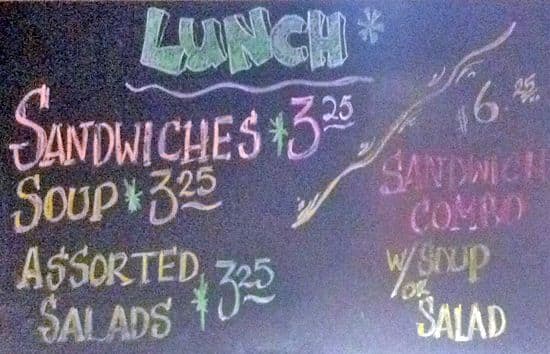 LUNCH*
SANDWICHES *3.25
SOUP *3.25
ASSORTED
SALADS *3.25
$6.25
SANDWICH
COMBO
W/SOUP
OR
SALAD